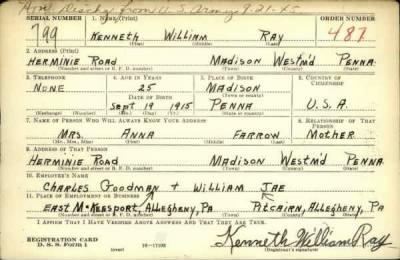 Hon. Disch'g from U.S. Army 9-21-45
SERIAL NUMBER 1. NAME (Print) ORDER NUMBER
799 KENNETH WILLIAM RAY 487
(First) (Middle) (Last)
2. ADDRESS (Print)
HERMINIE ROAD MADISON WESTM'D PENNA
(Number and street or R. F. D. number) (Town) (County) (State)
3. TELEPHONE 4. AGE IN YEARS 5. PLACE OF BIRTH 6. COUNTRY OF CITIZENSHIP
NONE 25 MADISON
DATE OF BIRTH (Town or county)
SEPT 19 1915 PENNA U.S.A.
(Mo.) (Day) (Yr.) (State or country)
7. NAME OF PERSON WHO WILL ALWAYS KNOW YOUR ADDRESS 8. RELATIONSHIP OF THAT PERSON
MRS. ANNA FARROW MOTHER
(Mr., Mrs., Miss) (First) (Middle) (Last)
9. ADDRESS OF THAT PERSON
HERMINIE ROAD MADISON WESTM'D PENNA
(Number and street or R. F. D. number) (Town) (County) (State)
10. EMPLOYER'S NAME
CHARLES GOODMAN + WILLIAM JAE
11. PLACE OF EMPLOYMENT OR BUSINESS
EAST MCKEESPORT, ALLEGHENY, PA PITCAIRN, ALLEGHENY, PA
(Number and street or R. F. D. number) (Town) (County) (State)
I AFFIRM THAT I HAVE VERIFIED ABOVE ANSWERS AND THAT THEY ARE TRUE.
REGISTRATION CARD
D. S. S. FORM 1 (over) 16-17105
Kenneth William Ray
(Registrant's signature)